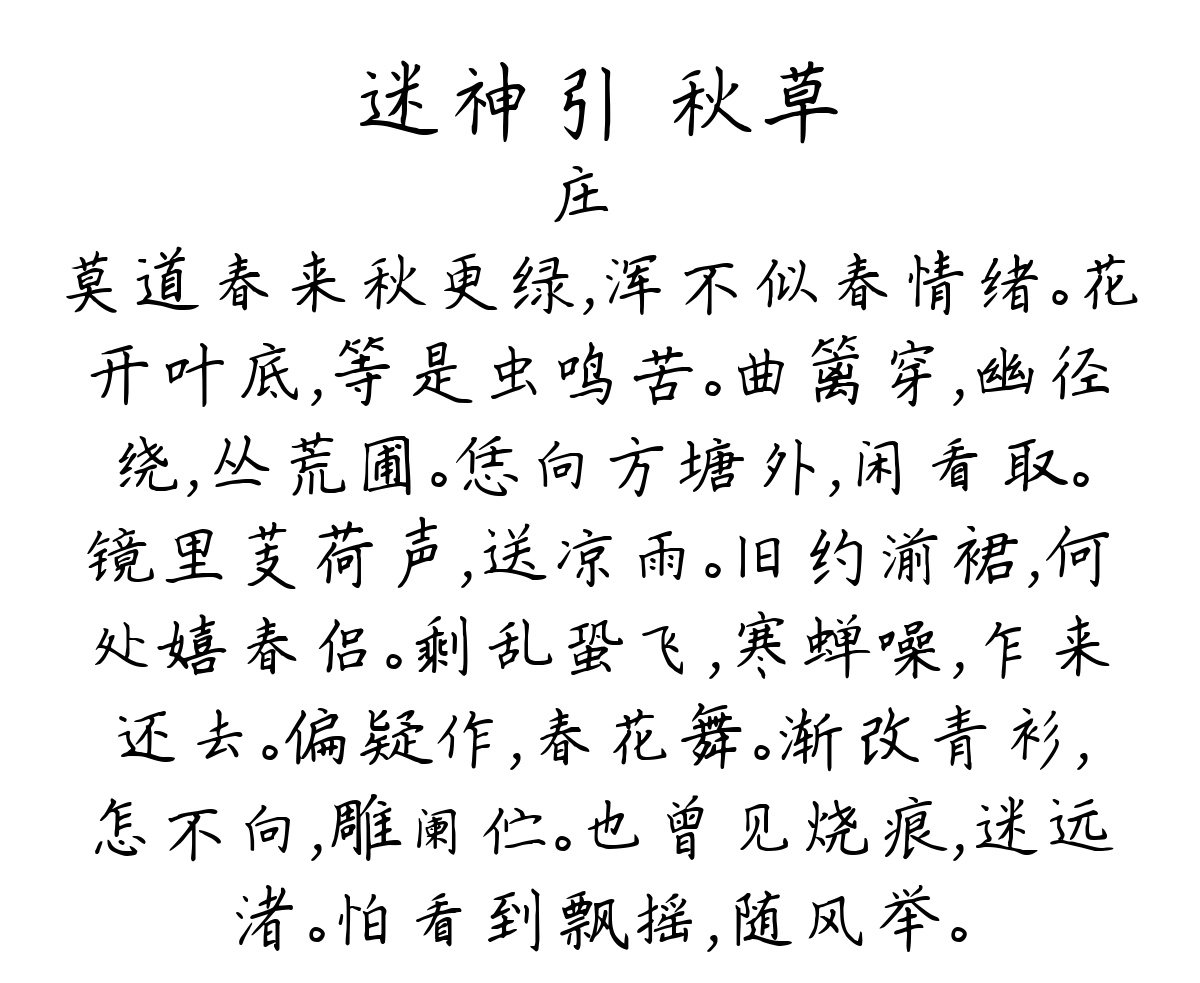 迷神引 秋草
庄
莫道春来秋更绿,浑不似春情绪。花
开叶底,等是虫鸣苦。曲篱穿,幽径
绕,丛荒圃。恁向方塘外,闲看取。
镜里芰荷声,送凉雨。旧约湔裙,何
处嬉春侣。剩乱蛩飞,寒蝉噪,乍来
还去。偏疑作,春花舞。渐改青衫,
怎不向,雕阑伫。也曾见烧痕,迷远
渚。怕看到飘摇,随风举。